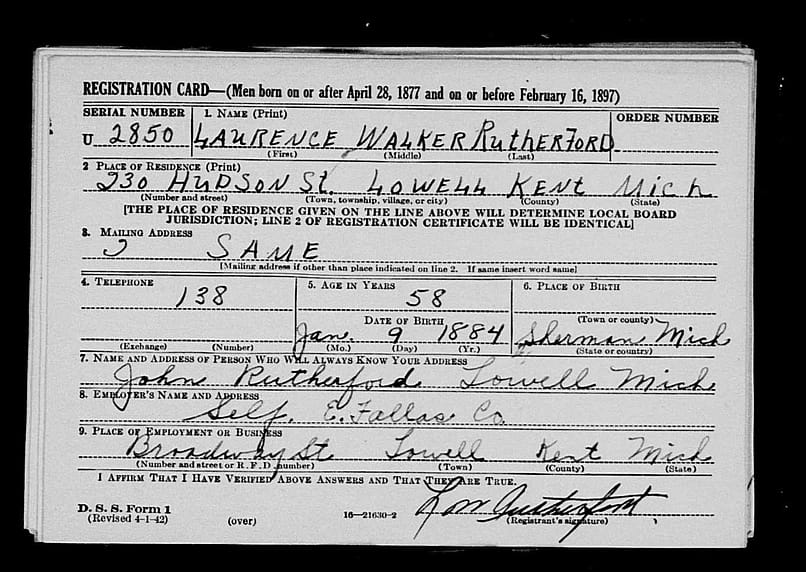 REGISTRATION CARD—(Men born on or after April 28, 1877 and on or before February 16, 1897)
SERIAL NUMBER 1. NAME (Print) ORDER NUMBER
U 2850 LAURENCE WALKER RUTHERFORD
(First) (Middle) (Last)
2 PLACE OF RESIDENCE (Print)
230 HUDSON St. LOWELL KENT MICH
(Number and street) (Town, township, village, or city) (County) (State)
[THE PLACE OF RESIDENCE GIVEN ON THE LINE ABOVE WILL DETERMINE LOCAL BOARD
JURISDICTION; LINE 2 OF REGISTRATION CERTIFICATE WILL BE IDENTICAL]
3. MAILING ADDRESS
SAME
[Mailing address if other than place indicated on line 2. If same insert word same]
4. TELEPHONE 5. AGE IN YEARS 6. PLACE OF BIRTH
138 58
DATE OF BIRTH (Town or county)
Jane. 9 1884 Sherman Mich
(Exchange) (Number) (Mo.) (Day) (Yr.) (State or country)
7. NAME AND ADDRESS OF PERSON WHO WILL ALWAYS KNOW YOUR ADDRESS
John Rutherford Lowell Mich
8. EMPLOYER'S NAME AND ADDRESS
Self. E. Fallas Co.
9. PLACE OF EMPLOYMENT OR BUSINESS
Broadway St Lowell Kent Mich
(Number and street or R. F. D. number) (Town) (County) (State)
I AFFIRM THAT I HAVE VERIFIED ABOVE ANSWERS AND THAT THEY ARE TRUE.
D. S. S. Form 1 Rutherford
(Revised 4-1-42) (over) 16—21630-2 (Registrant's signature)